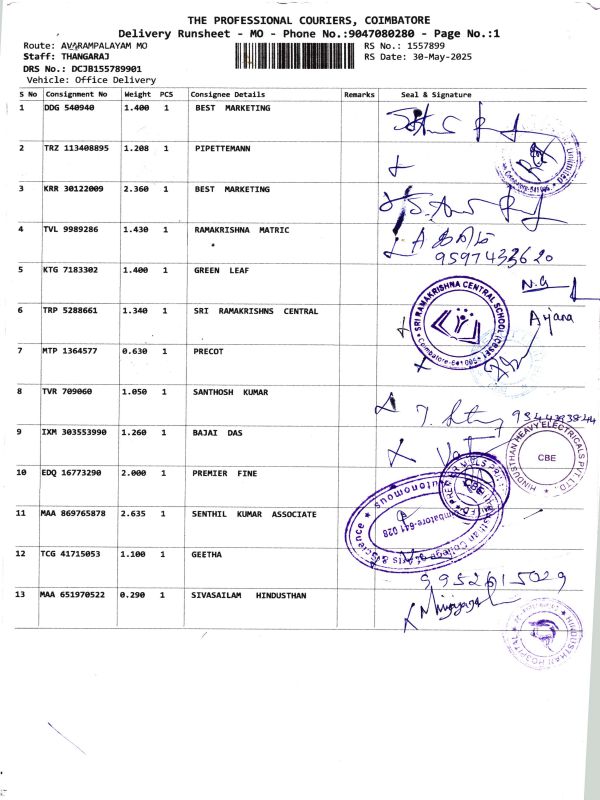 THE PROFESSIONAL COURIERS, COIMBATORE
Delivery Runsheet - MO - Phone No.:9047080280 - Page No.:1
Route: AVARAMPALAYAM MO RS No.: 1557899
Staff: THANGARAJ RS Date: 30-May-2025
DRS No.: DCJB155789901
Vehicle: Office Delivery
S No Consignment No Weight PCS Consignee Details Remarks Seal & Signature
1 DDG 540940 1.400 1 BEST MARKETING
2 TRZ 113408895 1.208 1 PIPETTEMANN
3 KRR 30122009 2.360 1 BEST MARKETING
4 TVL 9989286 1.430 1 RAMAKRISHNA MATRIC
9597433620
5 KTG 7183302 1.400 1 GREEN LEAF
N.G
6 TRP 5288661 1.340 1 SRI RAMAKRISHNS CENTRAL
SRI RAMAKRISHNA CENTRAL SCHOOL (CBSE)
Coimbatore-641 006
7 MTP 1364577 0.630 1 PRECOT
8 TVR 709060 1.050 1 SANTHOSH KUMAR
9 IXM 303553990 1.260 1 BAJAI DAS
HINDUSTHAN HEAVY ELECTRICALS PVT LTD
CBE
10 EDQ 16773290 2.000 1 PREMIER FINE
CBE
11 MAA 869765878 2.635 1 SENTHIL KUMAR ASSOCIATE
Hindusthan College of Arts & Science
Autonomous
Coimbatore-641 028
12 TCG 41715053 1.100 1 GEETHA
9952615029
13 MAA 651970522 0.290 1 SIVASAILAM HINDUSTHAN
HINDUSTHAN HOSPITAL